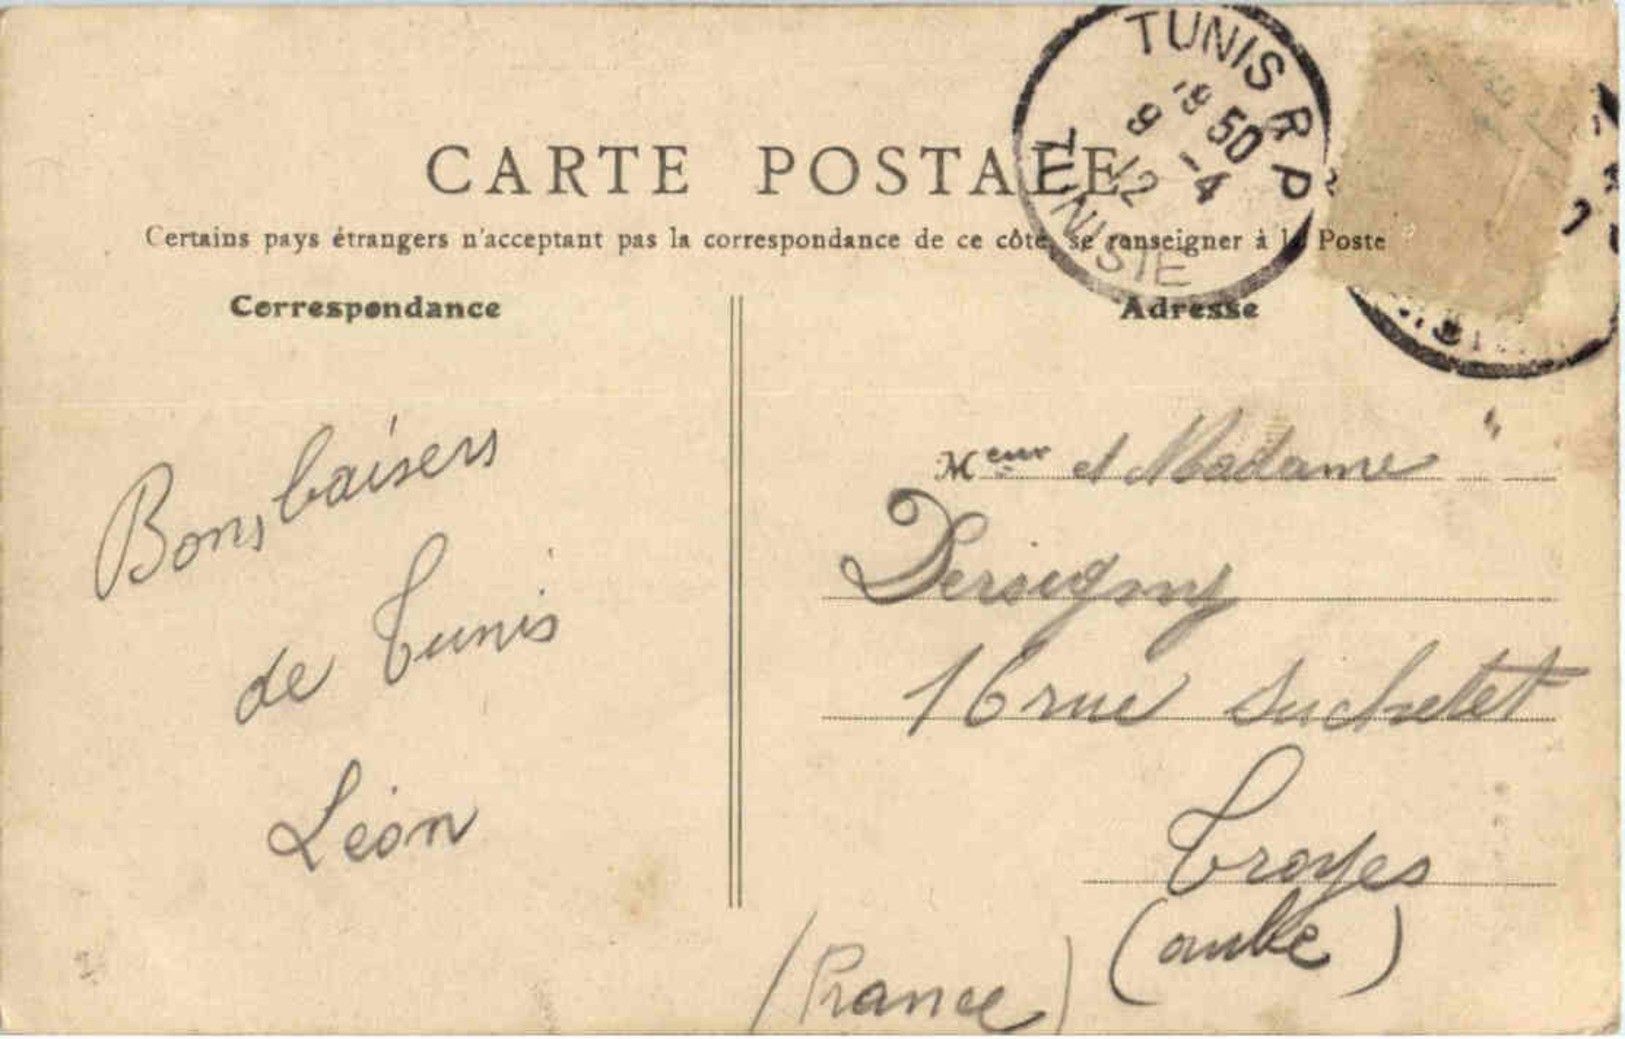 TUNIS R P
19 50
9 -4
12
TUNISIE
CARTE POSTALE
Certains pays étrangers n'acceptant pas la correspondance de ce côté, se renseigner à la Poste
Correspondance
Bons baisers
de Tunis
Léon
Adresse
Meur et Madame
Dersigny
16 rue Suchetet
Troyes
(aube)
(France)